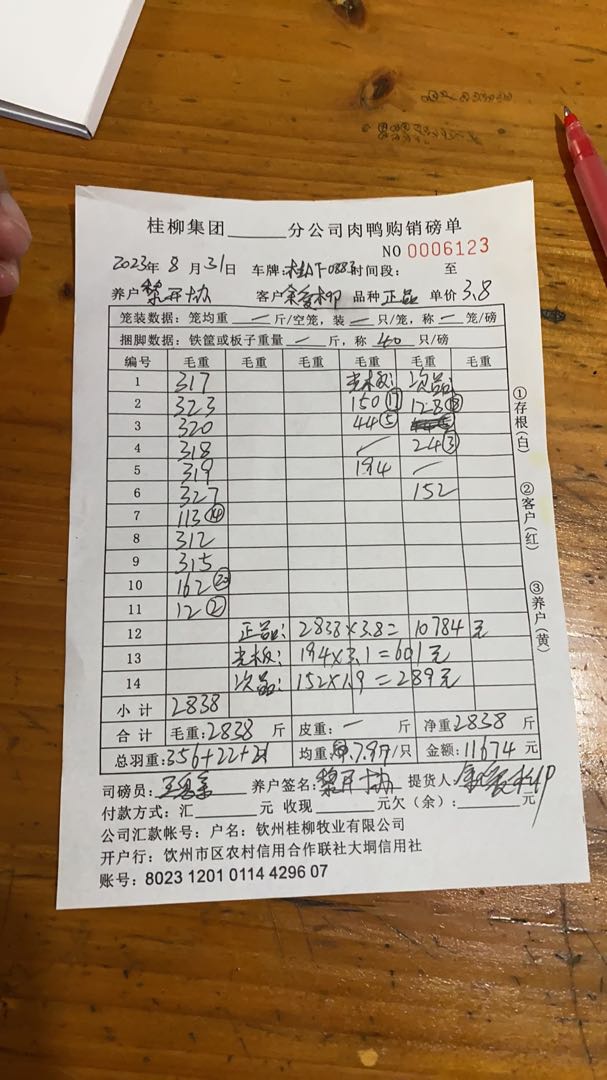 桂柳集团______分公司肉鸭购销磅单
NO 0006123
2023年 8 月 31日 车牌: 时间段: 至
养户 黎开协 客户 品种 正品 单价 3.8
笼装数据: 笼均重 — 斤/空笼, 装 — 只/笼, 称 — 笼/磅
捆脚数据: 铁筐或板子重量 — 斤, 称 40 只/磅
编号 毛重 毛重 毛重 毛重 毛重 毛重
1 317 光板: 次品:
2 323 150⑰ 128⑱
3 320 44⑤
4 318 24③
5 319 194
6 327 152
7 113⑭
8 312
9 315
10 162⑳
11 12②
12 正品: 2838×3.8= 10784 元
13 光板: 194×3.1=601元
14 次品: 152×1.9=289元
小计 2838
合计 毛重: 2838 斤 皮重: — 斤 净重 2838 斤
总羽重: 356+22+21 均重: 7.97/只 金额: 11674 元
司磅员: 养户签名: 黎开协 提货人:
付款方式: 汇______元 收现______元欠(余): ______元
公司汇款帐号: 户名: 钦州桂柳牧业有限公司
开户行: 饮州市区农村信用合作联社大垌信用社
账号: 8023 1201 0114 4296 07
①存根(白)
②客户(红)
③养户(黄)